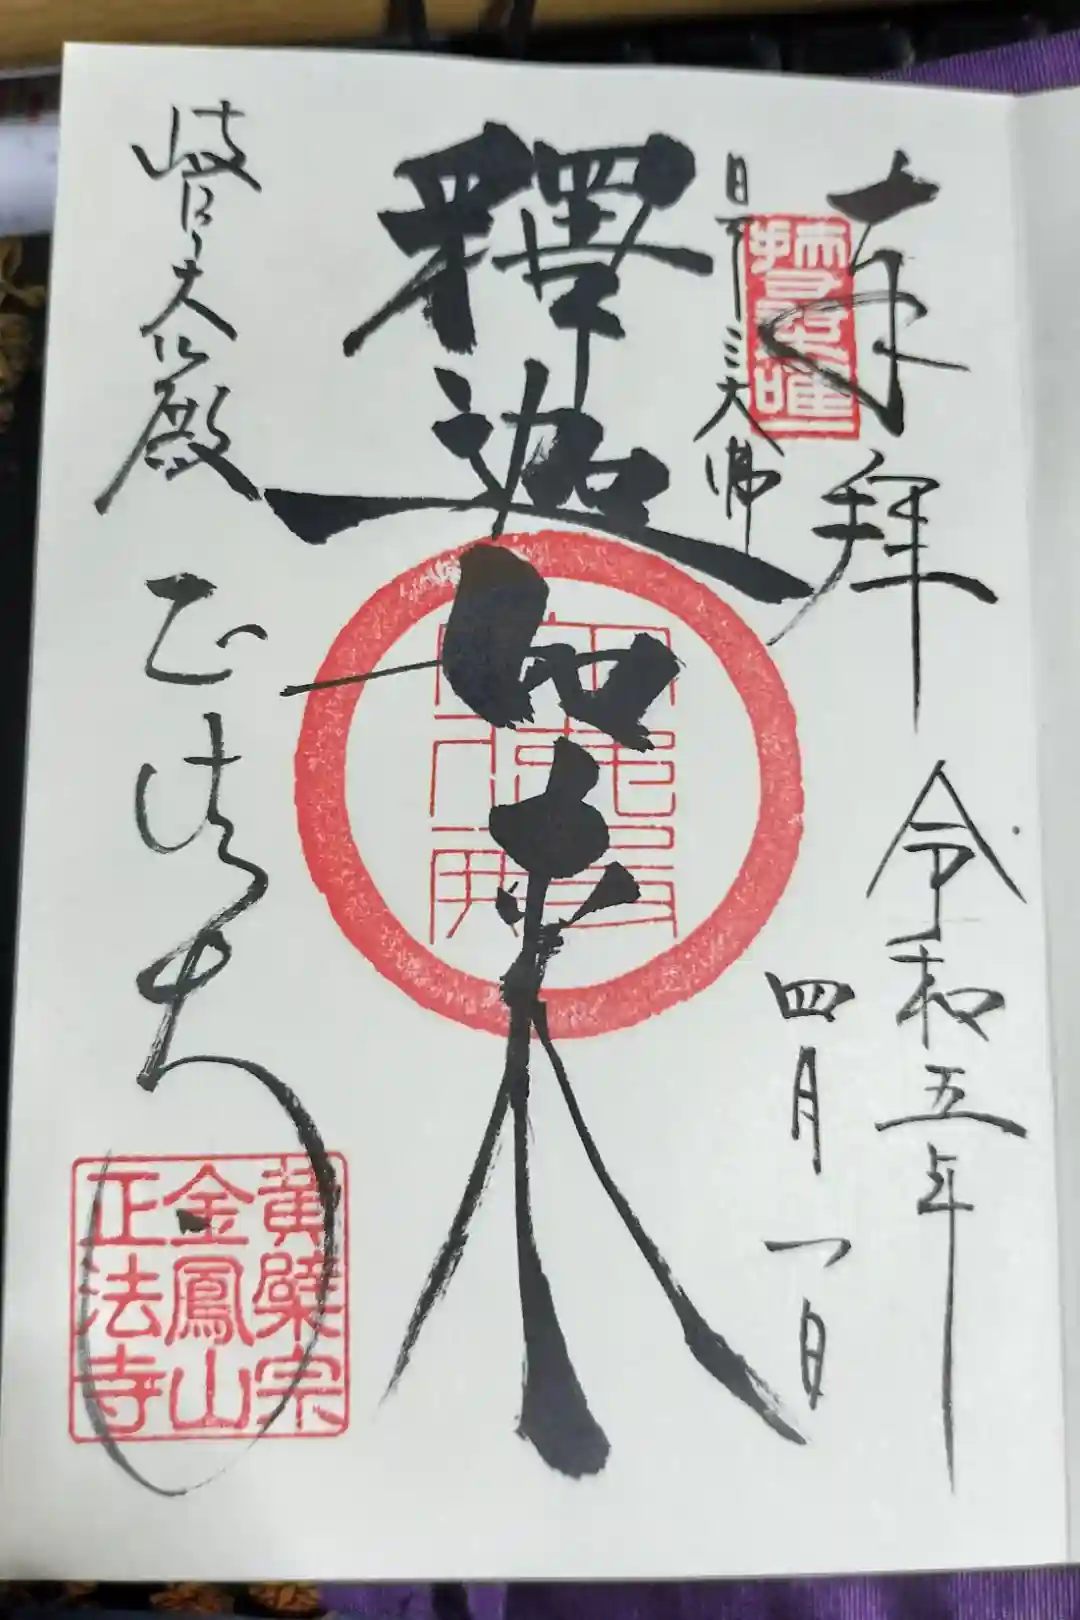 奉拝
令和五年
四月一日
日本三大佛
釋迦如来
岐阜大仏殿
正法寺
黄檗宗
金鳳山
正法寺